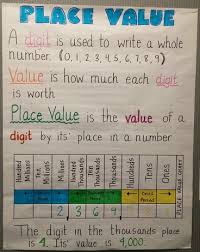 PLACE VALUE
A digit is used to write a whole
number. (0, 1, 2, 3, 4, 5, 6, 7, 8, 9)
Value is how much each digit
is worth
Place Value is the value of a
digit by its' place in a number
Hundred Millions
Ten Millions
Millions
Hundred Thousands
Ten Thousands
Thousands
Hundreds
Tens
Ones
PLACE VALUE CHART
Period
Period
Ones Period
2 3 6 4
The digit in the thousands place
is 4. Its' value is 4,000.